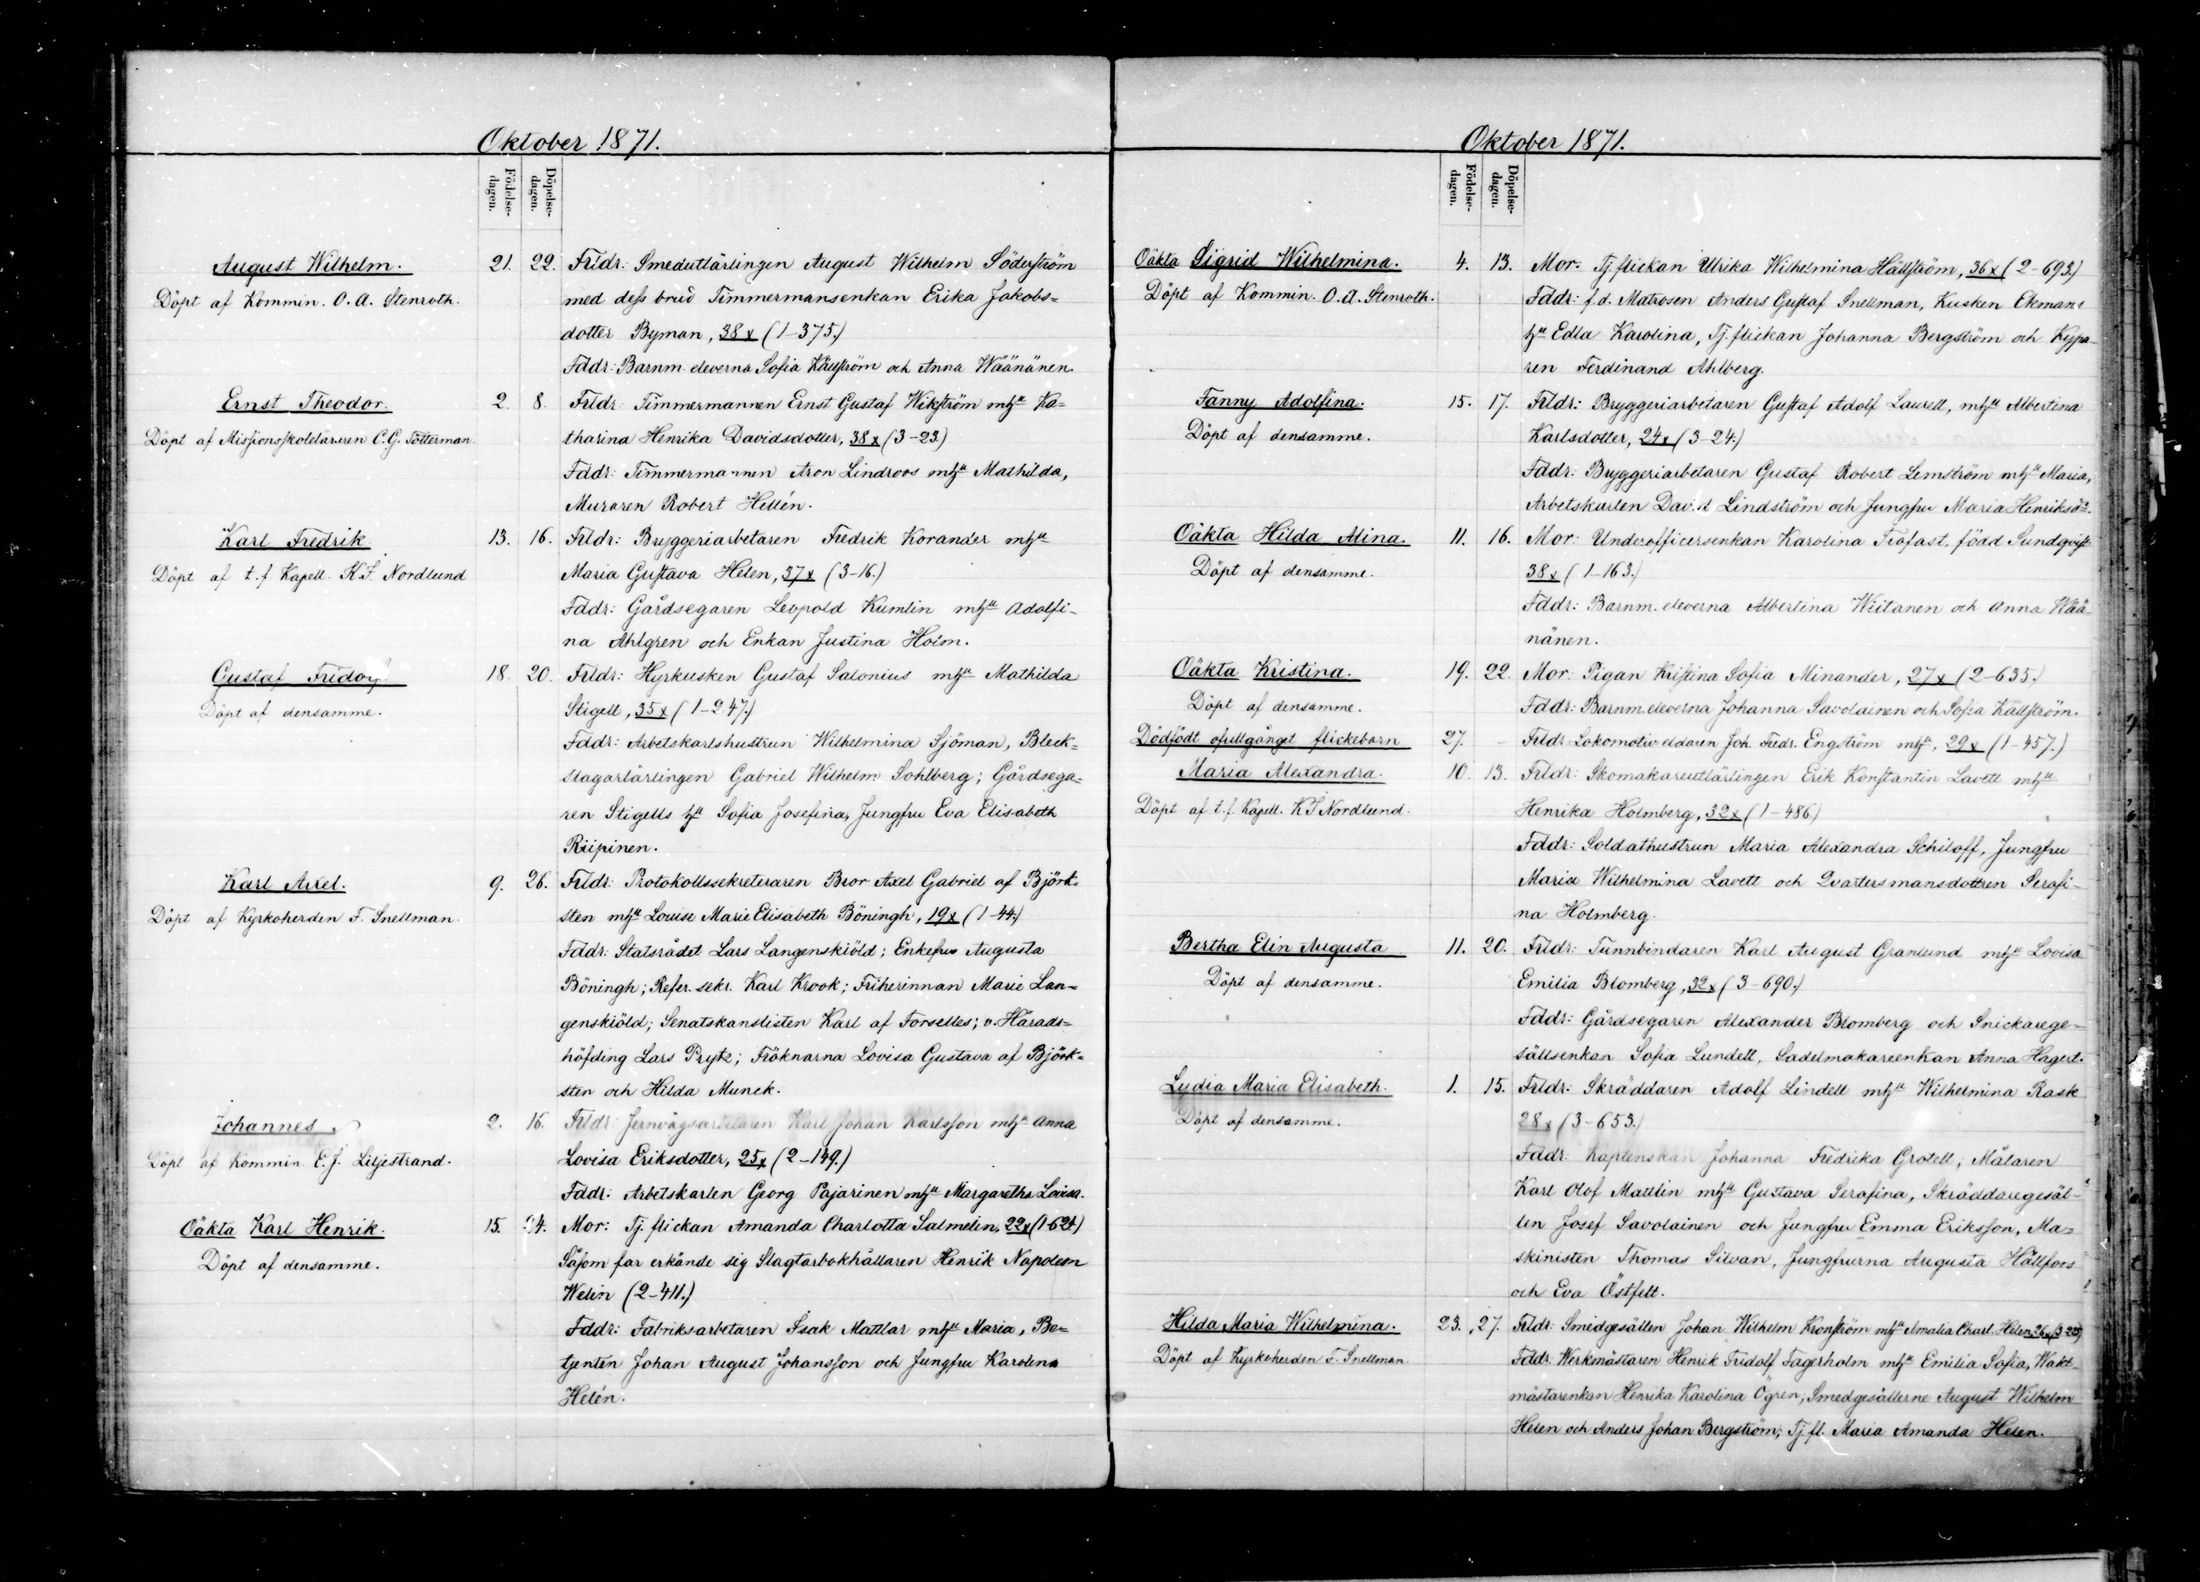 Oktober 1871.
Födelse-
dagen.
Döpelse-
dagen.
August Wilhelm.
Döpt af Kommin. O. A. Stenroth.
21. 22. Frldr: Smedutlärlingen August Wilhelm Söderström
med dess brud Timmermansenkan Erika Jakobs-
dotter Byman, 38x (1-375.)
Fddr: Barnm. eleverna Sofia Källström och Anna Wäänänen.
Ernst Theodor.
Döpt af Missionsskoleläraren C. G. Tötterman.
2. 8. Frldr: Timmermannen Ernst Gustaf Wikström mhu Ka-
tharina Henrika Davidsdotter, 38x (3-23.)
Fddr: Timmermannen Aron Lindroos mhu Mathilda,
Muraren Robert Hellén.
Karl Fredrik
Döpt af t.f. Kapell. K. F. Nordlund
13. 16. Frldr: Bryggeriarbetaren Fredrik Korander mhu
Maria Gustava Helen, 37x (3-16.)
Fddr: Gårdsegaren Leopold Kumlin mhu Adolfi-
na Ahlgren och Enkan Justina Holm.
Gustaf
Döpt af densamme.
18. 20. Frldr: Hyrkusken Gustaf Salonius mhu Mathilda
Stigell, 35x (1-247.)
Fddr: Arbetskarlshustrun Wilhelmina Sjöman, Bleck-
slagarlärlingen Gabriel Wilhelm Sohlberg; Gårdsega-
ren Stigells hu Sofia Josefina, Jungfru Eva Elisabeth
Riipinen.
Karl Axel.
Döpt af Kyrkoherden F. Snellman.
9. 26. Frldr: Protokollssekreteraren Bror Axel Gabriel af Björk-
sten mhu Louise Marie Elisabeth Böningh, 19x (1-44.)
Fddr: Statsrådet Lars Langenskiöld; Enkefru Augusta
Böningh; Refer. sekr. Karl Krook; Friherinnan Marie Lan-
genskiöld; Senatskanslisten Karl af Forselles; v. Härads-
höfding Lars Prytz; Fröknarna Lovisa Gustava af Björk-
sten och Hilda Munck.
Johannes
Döpt af Kommin. E. J. Liljestrand.
2. 16. Frldr: Jernvägsarbetaren Karl Johan Karlsson mhu Anna
Lovisa Eriksdotter, 25x (2-149.)
Fddr: Arbetskarlen Georg Pajarinen mhu Margaretha Lovisa.
Oäkta Karl Henrik.
Döpt af densamme.
15. 24. Mor: Tj. flickan Amanda Charlotta Salmelin, 22x (1-624)
Såsom far erkände sig Slagtarbokhållaren Henrik Napoleon
Welin (2-411.)
Fddr: Fabriksarbetaren Isak Mattlar mhu Maria, Be-
tjenten Johan August Johansson och Jungfru Karolina
Helén.
Oktober 1871.
Födelse-
dagen.
Döpelse-
dagen.
Oäkta Sigrid Wilhelmina.
Döpt af Kommin. O. A. Stenroth.
4. 13. Mor: Tj. flickan Ulrika Wilhelmina Hällström, 36x (2-693.)
Fddr: f.d. Matrosen Anders Gustaf Snellman, Kusken Ekmans
hu Edla Karolina, Tj. flickan Johanna Bergström och Kypa-
ren Ferdinand Ahlberg.
Fanny Adolfina.
Döpt af densamme.
15. 17. Frldr: Bryggeriarbetaren Gustaf Adolf Laurell, mhu Albertina
Karlsdotter, 24x (3-24.)
Fddr: Bryggeriarbetaren Gustaf Robert Lemström mhu Maria,
Arbetskarlen David Lindström och Jungfru Maria Henriksdr.
Oäkta Hilda Alina.
Döpt af densamme.
11. 16. Mor: Underofficersenkan Karolina Trofast, född Sundqvist
38x (1-163.)
Fddr: Barnm. eleverna Albertina Wiitanen och Anna Wää-
nänen.
Oäkta Kristina.
Döpt af densamme.
19. 22. Mor: Pigan Kristina Sofia Minander, 27x (2-635.)
Fddr: Barnm. eleverna Johanna Savolainen och Sofia Källström.
Dödfödt ofullgånget flickebarn
27. - Frldr: Lokomotiveldaren Joh. Fredr. Engström mhu, 29x (1-457.)
Maria Alexandra.
Döpt af t.f. Kapell. K F Nordlund.
10. 13. Frldr: Skomakareutlärlingen Erik Konstantin Lavett mhu
Henrika Holmberg, 32x (1-486)
Fddr: Soldathustrun Maria Alexandra Schiloff, Jungfru
Maria Wilhelmina Lavett och Qvartersmansdottren Serafi-
na Holmberg.
Bertha Elin Augusta
Döpt af densamme.
11. 20. Frldr: Tunnbindaren Karl August Granlund mhu Lovisa
Emilia Blomberg, 32x (3-690.)
Fddr: Gårdsegaren Alexander Blomberg och Snickarege-
sällsenkan Sofia Lundell, Sadelmakareenkan Anna Hagert.
Lydia Maria Elisabeth.
Döpt af densamme.
1. 15. Frldr: Skräddaren Adolf Lindell mhu Wilhelmina Rask
28x (3-653.)
Fddr: Kaptenskan Johanna Fredrika Grotell; Målaren
Karl Olof Mattlin mhu Gustava Serafina, Skräddaregesäl-
len Josef Savolainen och Jungfru Emma Eriksson, Ma-
skinisten Thomas Silvan, Jungfrurna Augusta Hällfors
och Eva Östfelt.
Hilda Maria Wilhelmina.
Döpt af Kyrkoherden F. Snellman.
23. 27. Frldr: Smidgesällen Johan Wilhelm Kronström mhu Amalia Charl. Helen 26x
Fddr: Werkmästaren Henrik Fridolf Fagerholm mhu Emilia Sofia, Wakt-
mästarenkan Henrika Karolina Ögren; Smedgesällerne August Wilhelm
Helen och Anders Johan Bergström; Tj. fl. Maria Amanda Helen.